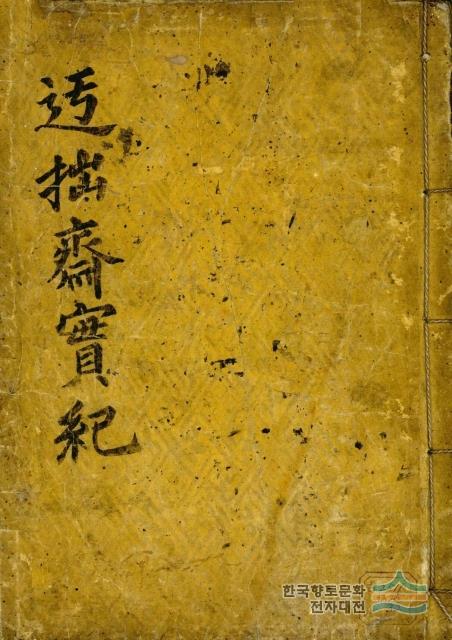 迃拙齋實紀
한국향토문화
전자대전